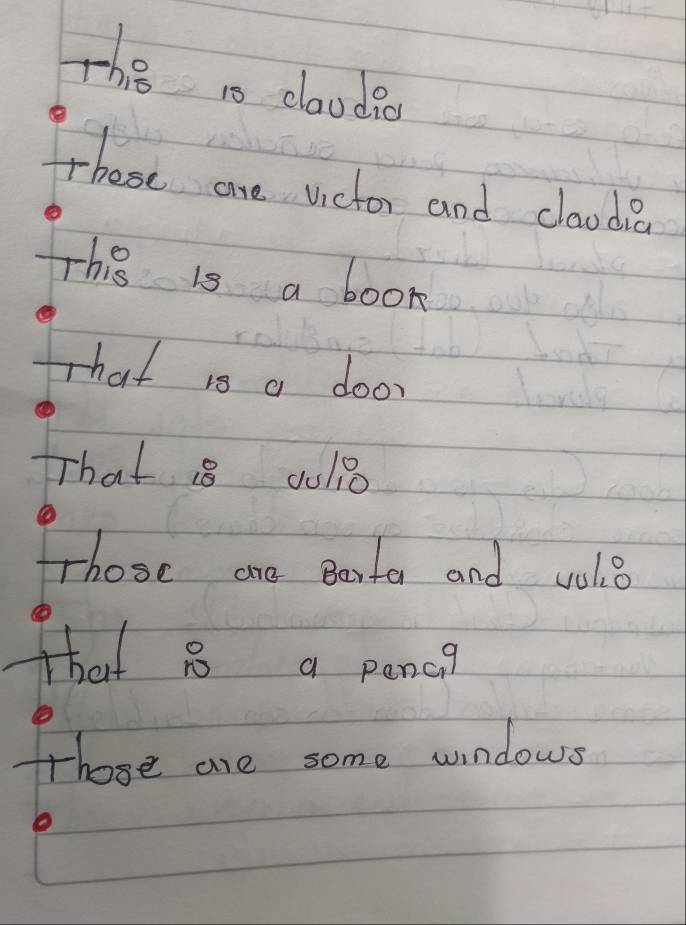 This is claudia
These are victor and claudia
This is a book
That is a door
That is Julio
Those are Berta and Julio
That is a
Those are some windows